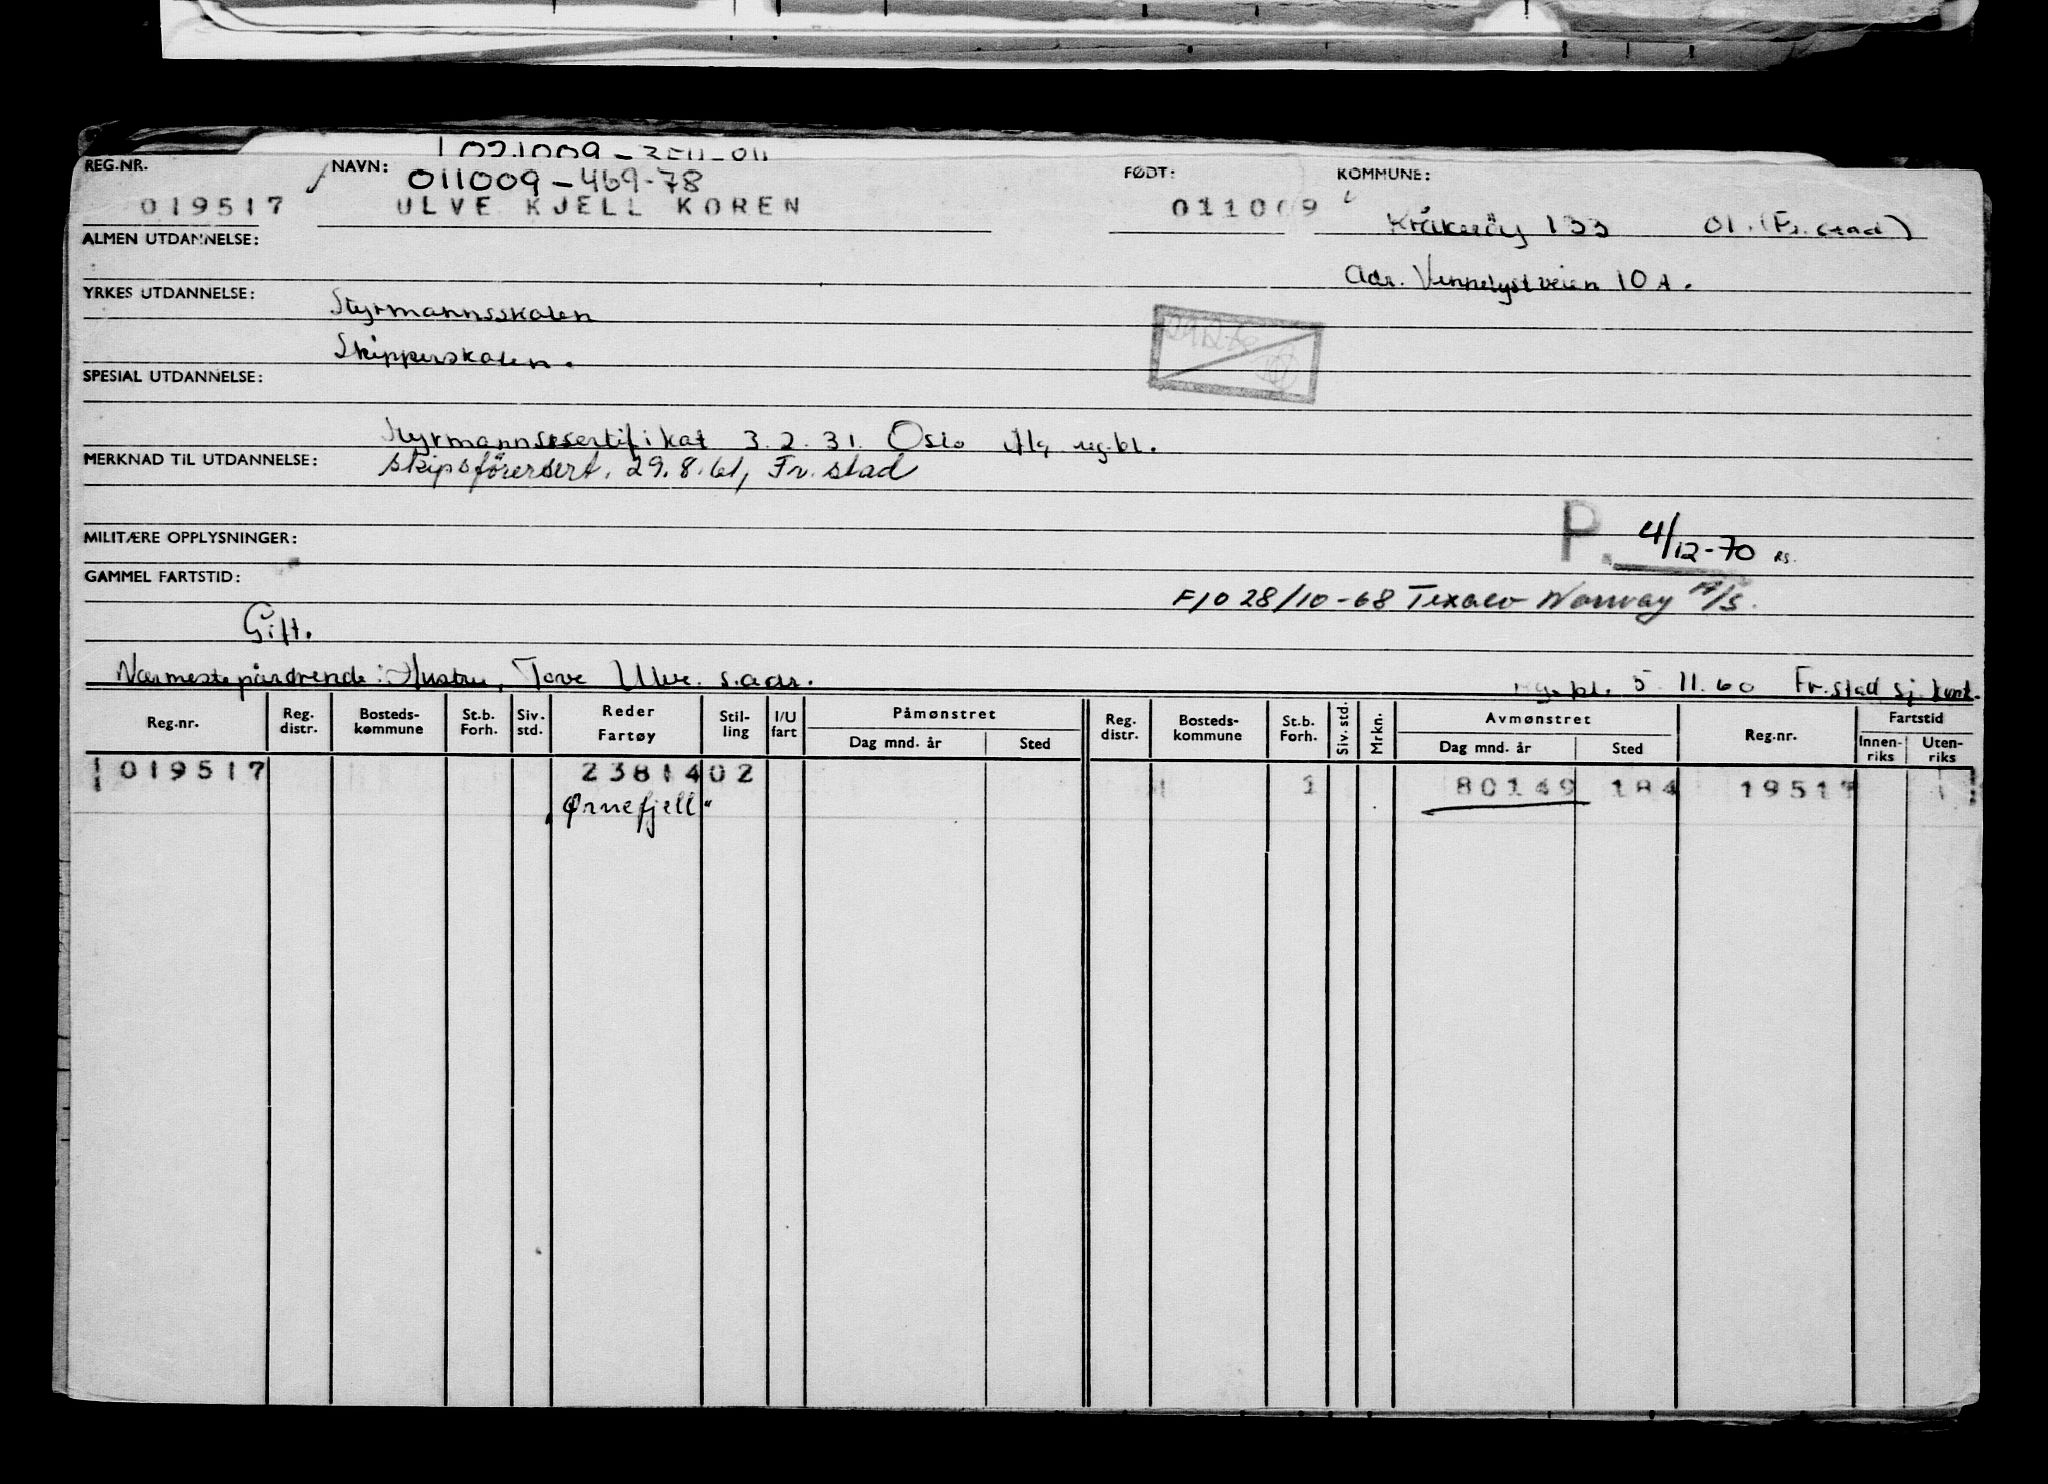 REG.NR. NAVN: 011009-469-78 FØDT: KOMMUNE:
019517 ULVE KJELL KOREN 011009 Kråkerøy 133 01. (Fr.stad)
ALMEN UTDANNELSE:
Adr. Vennelystveien 10 A.
YRKES UTDANNELSE: Styrmannsskolen
Skipperskolen.
SPESIAL UTDANNELSE:
Styrmannssertifikat 3.2.31. Oslo reg.bl.
MERKNAD TIL UTDANNELSE: Skipsførersert. 29.8.61, Fr.stad
MILITÆRE OPPLYSNINGER: P. 4/12-70 RS.
GAMMEL FARTSTID:
F/O 28/10-68 Texaco Norway A/S.
Gift.
Nærmeste pårørende: Hustru, Tove Ulve. s.adr. 5 11.60 Fr.stad sj.kont.
Reg.nr. Reg. distr. Bosteds-kommune St.b. Forh. Siv. std. Reder Fartøy Stil-ling I/U fart Påmønstret Dag mnd. år Sted Reg. distr. Bosteds-kommune St.b. Forh. Siv. std. Mrkn. Avmønstret Dag mnd. år Sted Reg.nr. Fartstid Innen-riks Uten-riks
019517 23814 02 1 80149 184 19517
"Ørnefjell"